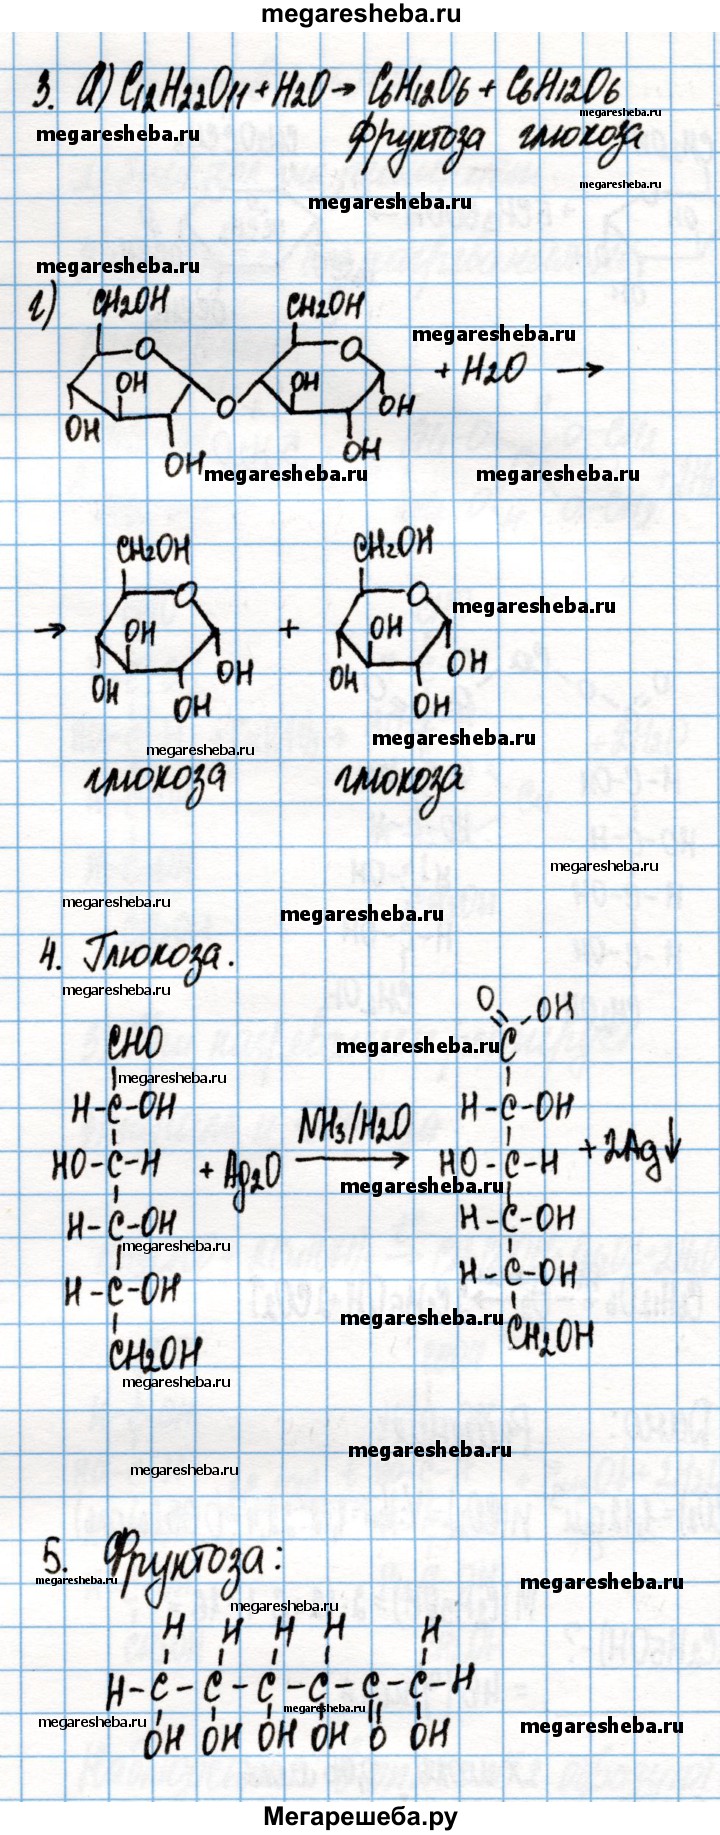 megaresheba.ru
3. а) C12H22O11 + H2O → C6H12O6 + C6H12O6
megaresheba.ru
megaresheba.ru
фруктоза глюкоза
megaresheba.ru
megaresheba.ru
megaresheba.ru
г) CH2OH CH2OH
megaresheba.ru
O O
+ H2O →
OH OH
O OH
OH
OH
OH
megaresheba.ru megaresheba.ru
CH2OH CH2OH
O O
megaresheba.ru
→ OH + OH
OH OH OH OH
OH OH
megaresheba.ru megaresheba.ru
глюкоза глюкоза
megaresheba.ru
megaresheba.ru
megaresheba.ru
4. Глюкоза.
megaresheba.ru
O OH
CHO C
megaresheba.ru
megaresheba.ru
H-C-OH NH3/H2O H-C-OH
HO-C-H + Ag2O → HO-C-H + 2Ag↓
megaresheba.ru
H-C-OH H-C-OH
megaresheba.ru
H-C-OH H-C-OH
megaresheba.ru
CH2OH CH2OH
megaresheba.ru
megaresheba.ru
megaresheba.ru
5. Фруктоза:
megaresheba.ru megaresheba.ru
megaresheba.ru
H H H H H
H-C-C-C-C-C-C-H
megaresheba.ru
megaresheba.ru megaresheba.ru
OH OH OH OH O OH
Мегарешеба.ру